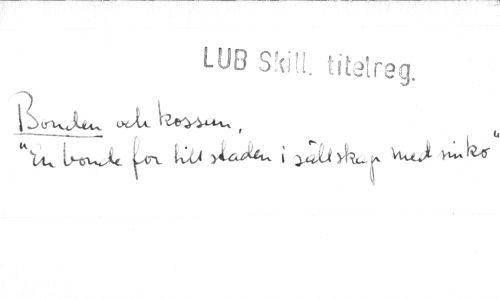 LUB Skill. titelreg.
Bonden och kossan,
"En bonde for till staden i sällskap med sin ko"